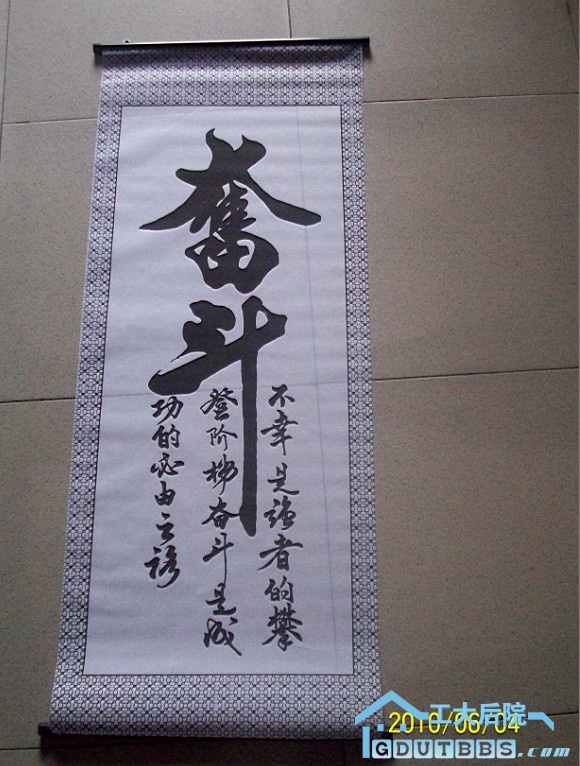 奮斗
不幸是强者的攀
登阶梯奋斗是成
功的必由之路
2010/06/04
工大后院
GDUTBBS.com